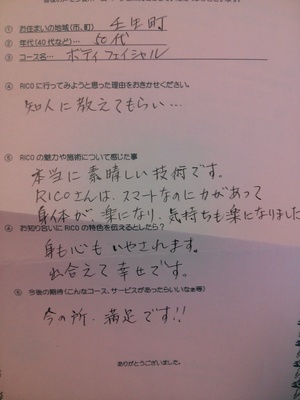 ① お住まいの地域（市、町） 壬生町
② 年代（40代など）… 50代
③ コース名… ボディフェイシャル
④ RICOに行ってみようと思った理由をおきかせください。
知人に教えてもらい…
⑤ RICOの魅力や施術について感じた事
本当に素晴しい技術です。
RICOさんは、スマートなのに力があって
身体が楽になり、気持ちも楽になりました
④ お知り合いにRICOの特色を伝えるとしたら？
身も心もいやされます。
出合えて幸せです。
⑤ 今後の期待（こんなコース、サービスがあったらいいなぁ等）
今の所、満足です!!
ありがとうございました。